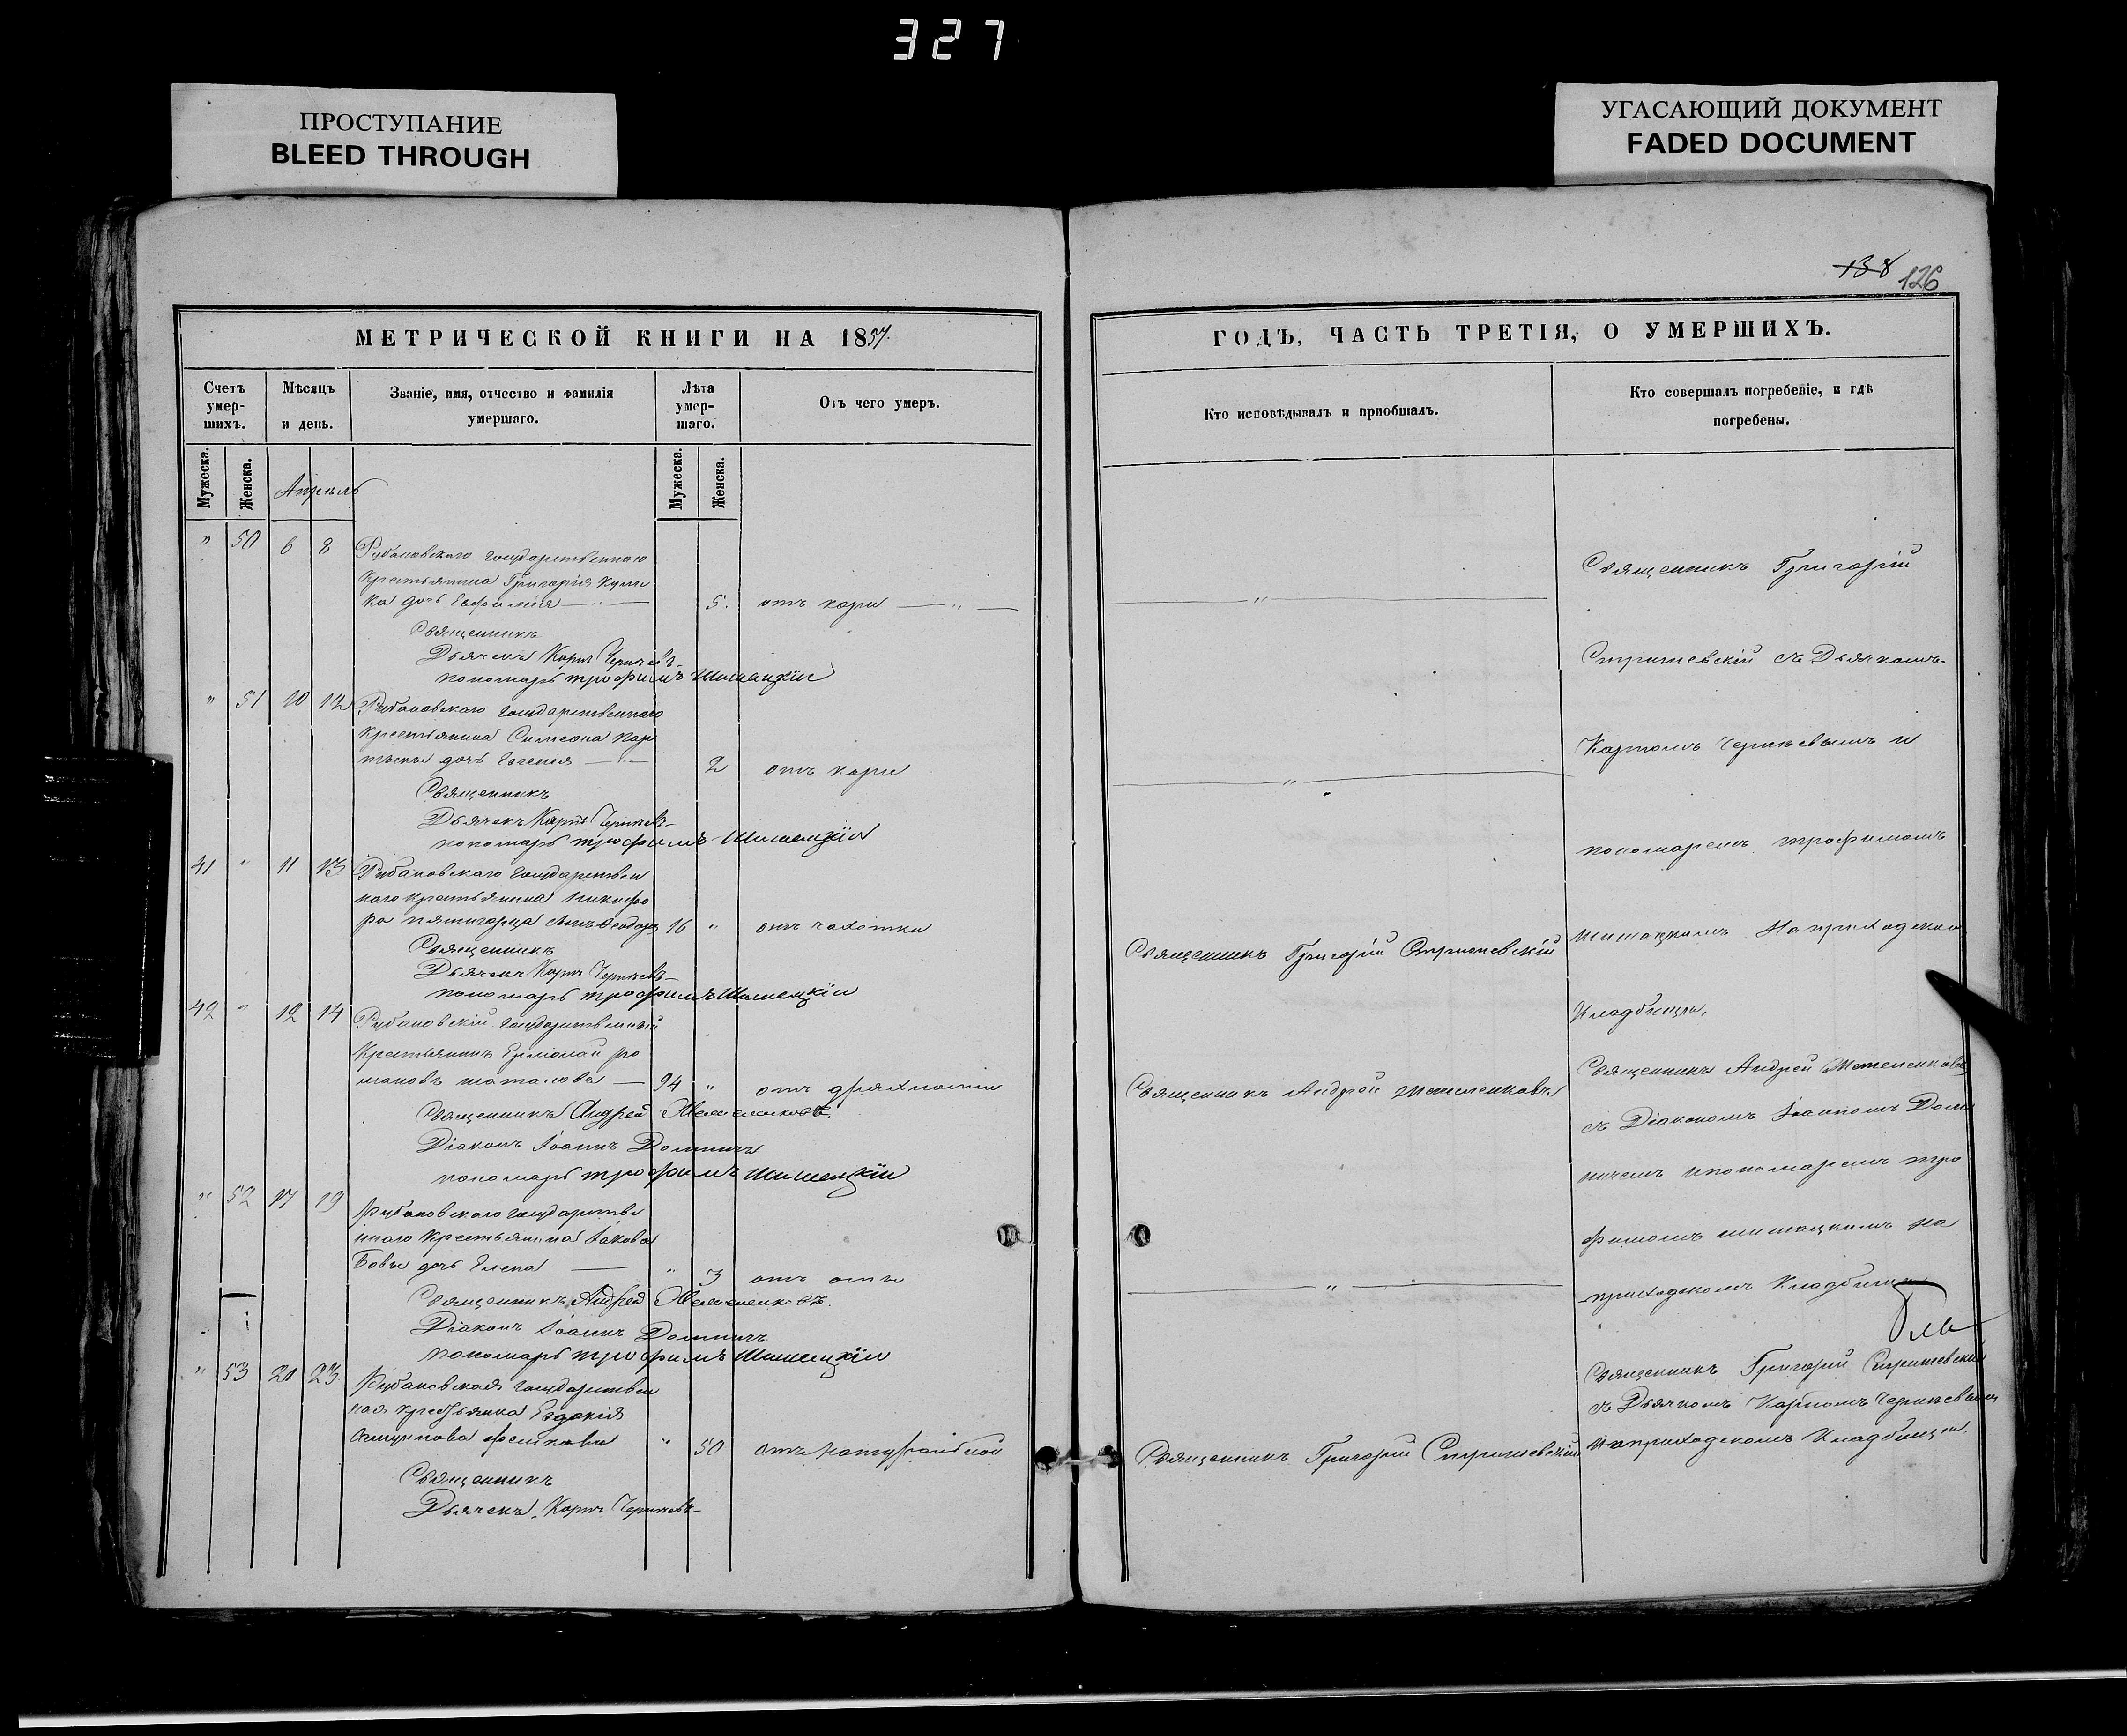 327
ПРОСТУПАНИЕ
BLEED THROUGH
УГАСАЮЩИЙ ДОКУМЕНТ
FADED DOCUMENT
138 126
МЕТРИЧЕСКОЙ КНИГИ НА 1857.
Счетъ умер-шихъ.
Мѣсяцъ и день.
Званіе, имя, отчество и фамилія умершаго.
Лѣта умер-шаго.
Отъ чего умеръ.
Мужеска. Женска. Апрель Мужеска. Женска.
" 50 6 8 Рубановскаго государственнаго
крестьянина Григорія
ка дочь Евфимія — " — 5. отъ кори — " —
Священникъ
Дьячекъ Карпъ Чернявъ
пономарь трофимъ Шишацкій
" 51 10 12 Рубановскаго государственнаго
крестьянина Симеона
дочь Евгенія — " — 2 отъ кори
Священникъ
Дьячекъ Карпъ Чернявъ
пономарь трофимъ Шишацкій
41 " 11 13 Рубановскаго государствен
наго крестьянина Никифо
ра пятигорца сынъ Феодоръ 16 " отъ чахотки
Священникъ
Дьячекъ Карпъ Чернявъ
пономарь трофимъ Шишацкій
42 " 12 14 Рубановскій государственный
крестьянинъ Ермолай ро
мановъ — 94 " отъ дряхлости
Священникъ Андрей
Діаконъ Іоаннъ
пономарь трофимъ Шишацкій
" 52 17 19 Рубановскаго государстве
ннаго крестьянина Іакова
Бовы дочь Елена — " 3 отъ оспы
Священникъ Андрей
Діаконъ Іоаннъ
пономарь трофимъ Шишацкій
" 53 21 23 Рубановская государствен
ная крестьянка Евдокія
" 50 отъ натуральной
Священникъ
Дьячекъ Карпъ Чернявъ
ГОДЪ, ЧАСТЬ ТРЕТІЯ, О УМЕРШИХЪ.
Кто исповѣдывалъ и пріобщалъ.
Кто совершалъ погребеніе, и гдѣ погребены.
— " —
— " —
Священникъ Григорій Стришевскій
Священникъ Андрей
— " —
Священникъ Григорій Стришевскій
Священникъ Григорій
Стришевскій съ Дьячкомъ
Карпомъ Чернявымъ и
пономаремъ трофимомъ
шишацкимъ На приходском
Кладбищѣ,
Священникъ Андрей
съ Діакономъ Іоанномъ
и пономаремъ тро
фимомъ шишацкимъ на
приходскомъ Кладбищѣ
Священникъ Григорій Стришевскій
съ Дьячкомъ Карпомъ Чернявымъ
На приходскомъ Кладбищѣ.